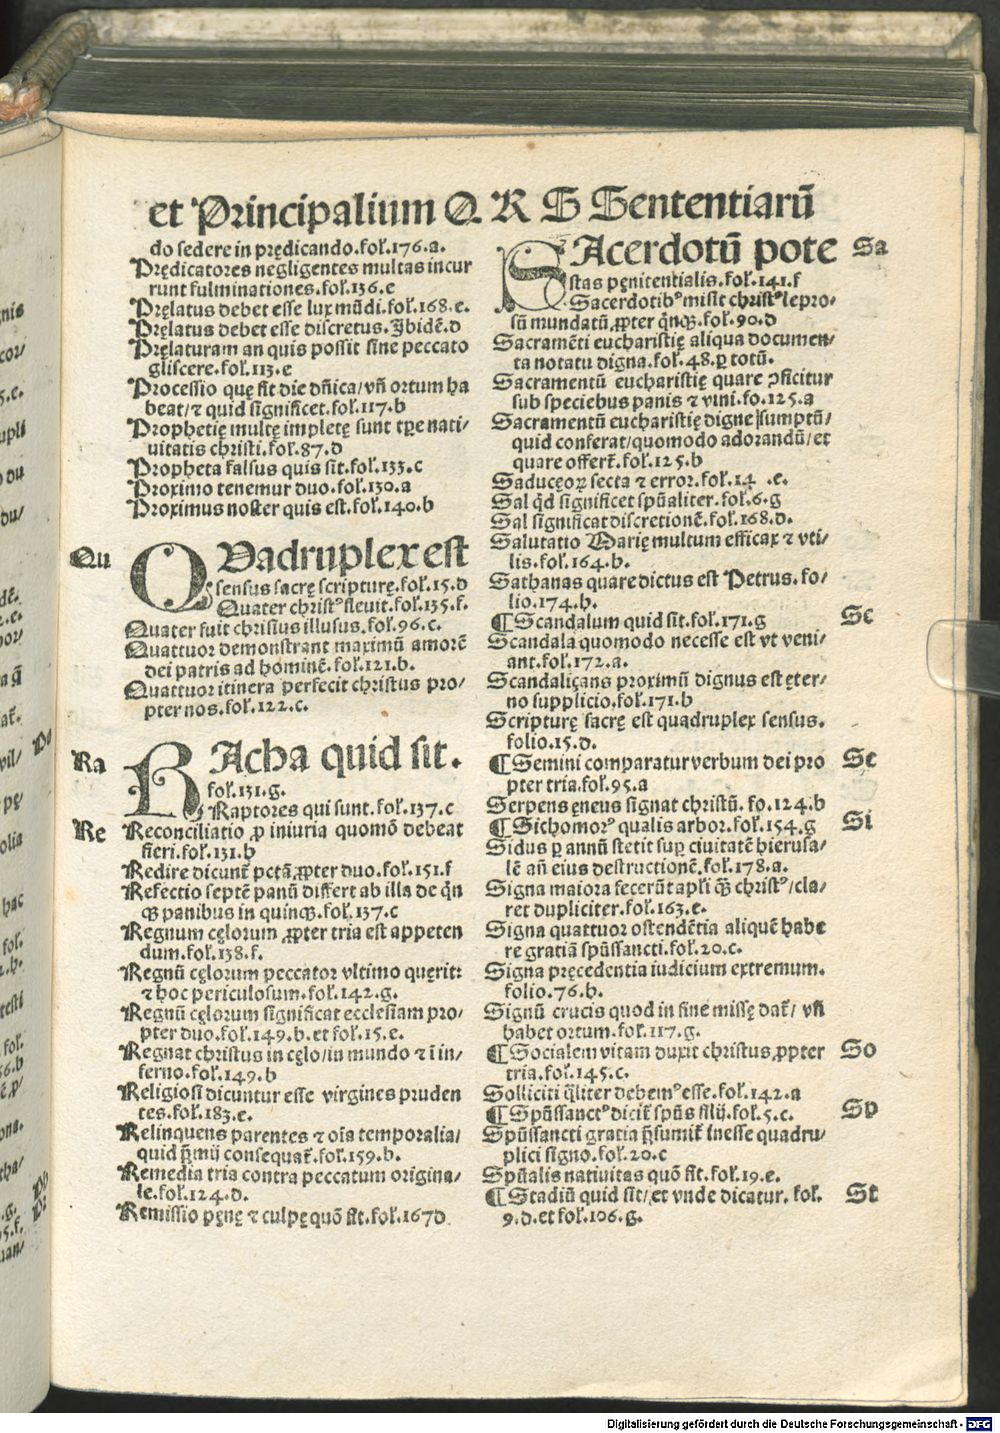 et Principalium Q R S Sententiarū
do sedere in prędicando.fol.176.a.
Prędicatores negligentes multas incur
runt fulminationes.fol.136.e
Pręlatus debet esse lux mūdi.fol.168.e.
Pręlatus debet esse discretus. Ibidē.d
Pręlaturam an quis possit sine peccato
gliscere.fol.113.e
Processio quę fit die dñica/vñ ortum ha
beat/⁊ quid significet.fol.117.b
Prophetię multę impletę sunt tꝑe nati/
uitatis christi.fol.87.d
Propheta falsus quis sit.fol.133.c
Proximo tenemur duo.fol.130.a
Proximus noster quis est.fol.140.b
Qu
QVadruplex est
sensus sacrę scripturę.fol.15.d
Quater christꝰ fleuit.fol.135.f.
Quater fuit christus illusus.fol.96.c.
Quattuor demonstrant maximū amorē
dei patris ad hominē.fol.121.b.
Quattuor itinera perfecit christus pro/
pter nos.fol.122.c.
Ra
RAcha quid sit.
fol.131.g.
Raptores qui sunt.fol.137.c
Re
Reconciliatio ꝓ iniuria quomō debeat
fieri.fol.131.h
Redire dicunt̄ pctā ꝓpter duo.fol.151.f
Refectio septē panū differt ab illa de q̄n
qꝫ panibus in quinqꝫ.fol.137.c
Regnum cęlorum ꝓpter tria est appeten
dum.fol.138.f.
Regnū cęlorum peccator vltimo quęrit:
⁊ hoc periculosum.fol.142.g.
Regnū cęlorum significat ecclesiam pro/
pter duo.fol.149.b.et fol.15.e.
Regnat christus in cęlo/in mundo ⁊ ī in/
ferno.fol.149.b
Religiosi dicuntur esse virgines pruden
tes.fol.183.e.
Relinquens parentes ⁊ oīa temporalia/
quid p̄mij consequat̄.fol.159.b.
Remedia tria contra peccatum origina/
le.fol.124.d.
Remissio pęnę ⁊ culpę quō fit.fol.167d
Sa
SAcerdotū pote
stas pęnitentialis.fol.141.f
Sacerdotibꝰ misit christꝰ lepro/
sū mundatū ꝓpter q̄nqꝫ.fol.90.d
Sacramēti eucharistię aliqua documen/
ta notatu digna.fol.48.ꝑ totū.
Sacramentū eucharistię quare ꝯficitur
sub speciebus panis ⁊ vini.fo.125.a
Sacramentū eucharistię digne sumptū/
quid conferat/quomodo adorandū/et
quare offert̄.fol.125.b
Saducęoꝝ secta ⁊ error.fol.14 .e.
Sal qd̄ significet spūaliter.fol.6.g
Sal significat discretionē.fol.168.d.
Salutatio Marię multum efficax ⁊ vti/
lis.fol.164.h.
Sathanas quare dictus est Petrus.fo/
lio.174.h.
Sc
¶ Scandalum quid sit.fol.171.g
Scandala quomodo necesse est vt veni/
ant.fol.172.a.
Scandaliçans proximū dignus est ęter/
no supplicio.fol.171.h
Scripturę sacrę est quadruplex sensus.
folio.15.d.
Se
¶ Semini comparatur verbum dei pro
pter tria.fol.95.a
Serpens ęneus signat christū.fo.124.b
Si
¶ Sichomorꝰ qualis arbor.fol.154.g
Sidus ꝑ annū stetit suꝑ ciuitatē hierusa/
lē añ eius destructionē.fol.178.a.
Signa maiora fecerūt apłi q̄ꝫ christꝰ/cla/
ret dupliciter.fol.163.e.
Signa quattuor ostendētia aliquē habe
re gratiā spūssancti.fol.20.c.
Signa pręcedentia iudicium extremum.
folio.76.h.
Signū crucis quod in fine missę dat̄/ vñ
habet ortum.fol.117.g.
So
¶ Socialem vitam duxit christus ꝓpter
tria.fol.145.c.
Solliciti q̄liter debemꝰ esse.fol.142.a
Sp
¶ Spūssanctꝰ dicit̄ spūs filij.fol.5.c.
Spūssancti gratia p̄sumit̄ inesse quadru/
plici signo.fol.20.c
Spūalis natiuitas quō fit.fol.19.e.
St
¶ Stadiū quid sit/et vnde dicatur. fol.
9.d.et fol.106.g.
Digitalisierung gefördert durch die Deutsche Forschungsgemeinschaft - DFG